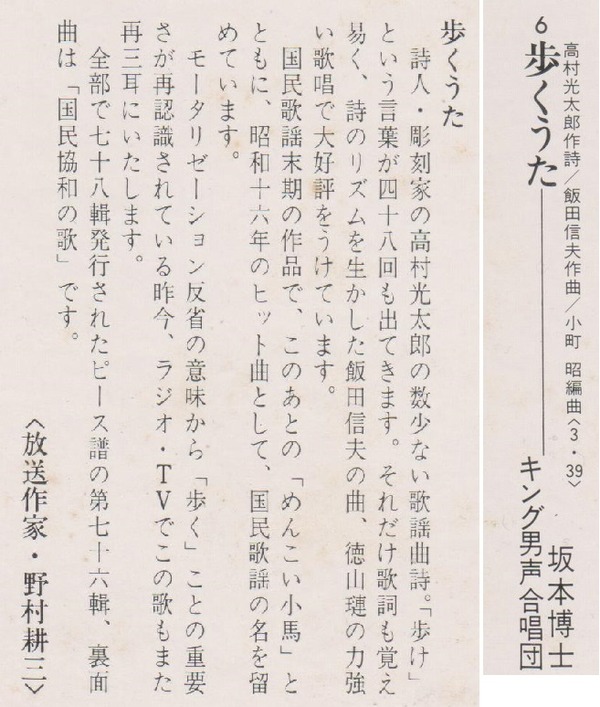 6 歩くうた
高村光太郎作詩/飯田信夫作曲/小町 昭編曲〈3・39〉
坂本博士
キング男声合唱団
歩くうた
詩人・彫刻家の高村光太郎の数少ない歌謡曲詩。「歩け」
という言葉が四十八回も出てきます。それだけ歌詞も覚え
易く、詩のリズムを生かした飯田信夫の曲、徳山璉の力強
い歌唱で大好評をうけています。
国民歌謡末期の作品で、このあとの「めんこい小馬」と
ともに、昭和十六年のヒット曲として、国民歌謡の名を留
めています。
モータリゼーション反省の意味から「歩く」ことの重要
さが再認識されている昨今、ラジオ・TVでこの歌もまた
再三耳にいたします。
全部で七十八輯発行されたピース譜の第七十六輯、裏面
曲は「国民協和の歌」です。
〈放送作家・野村耕三〉